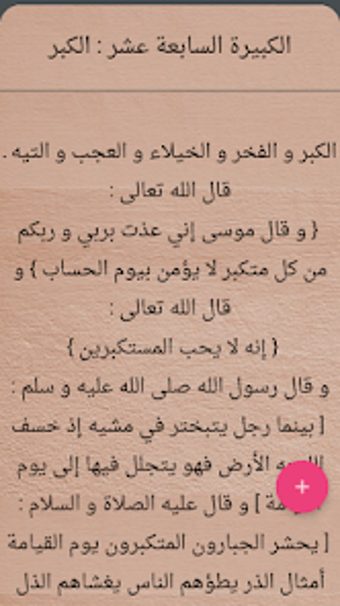 الكبيرة السابعة عشر : الكبر
الكبر و الفخر و الخيلاء و العجب و التيه .
قال الله تعالى :
{ و قال موسى إني عذت بربي و ربكم
من كل متكبر لا يؤمن بيوم الحساب } و
قال الله تعالى :
{ إنه لا يحب المستكبرين }
و قال رسول الله صلى الله عليه و سلم :
[ بينما رجل يتبختر في مشيه إذ خسف
الأرض فهو يتجلل فيها إلى يوم
] و قال عليه الصلاة و السلام :
[ يحشر الجبارون المتكبرون يوم القيامة
أمثال الذر يطؤهم الناس يغشاهم الذل